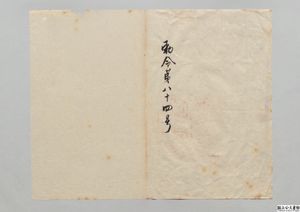 勅令第八十四号
国立公文書館